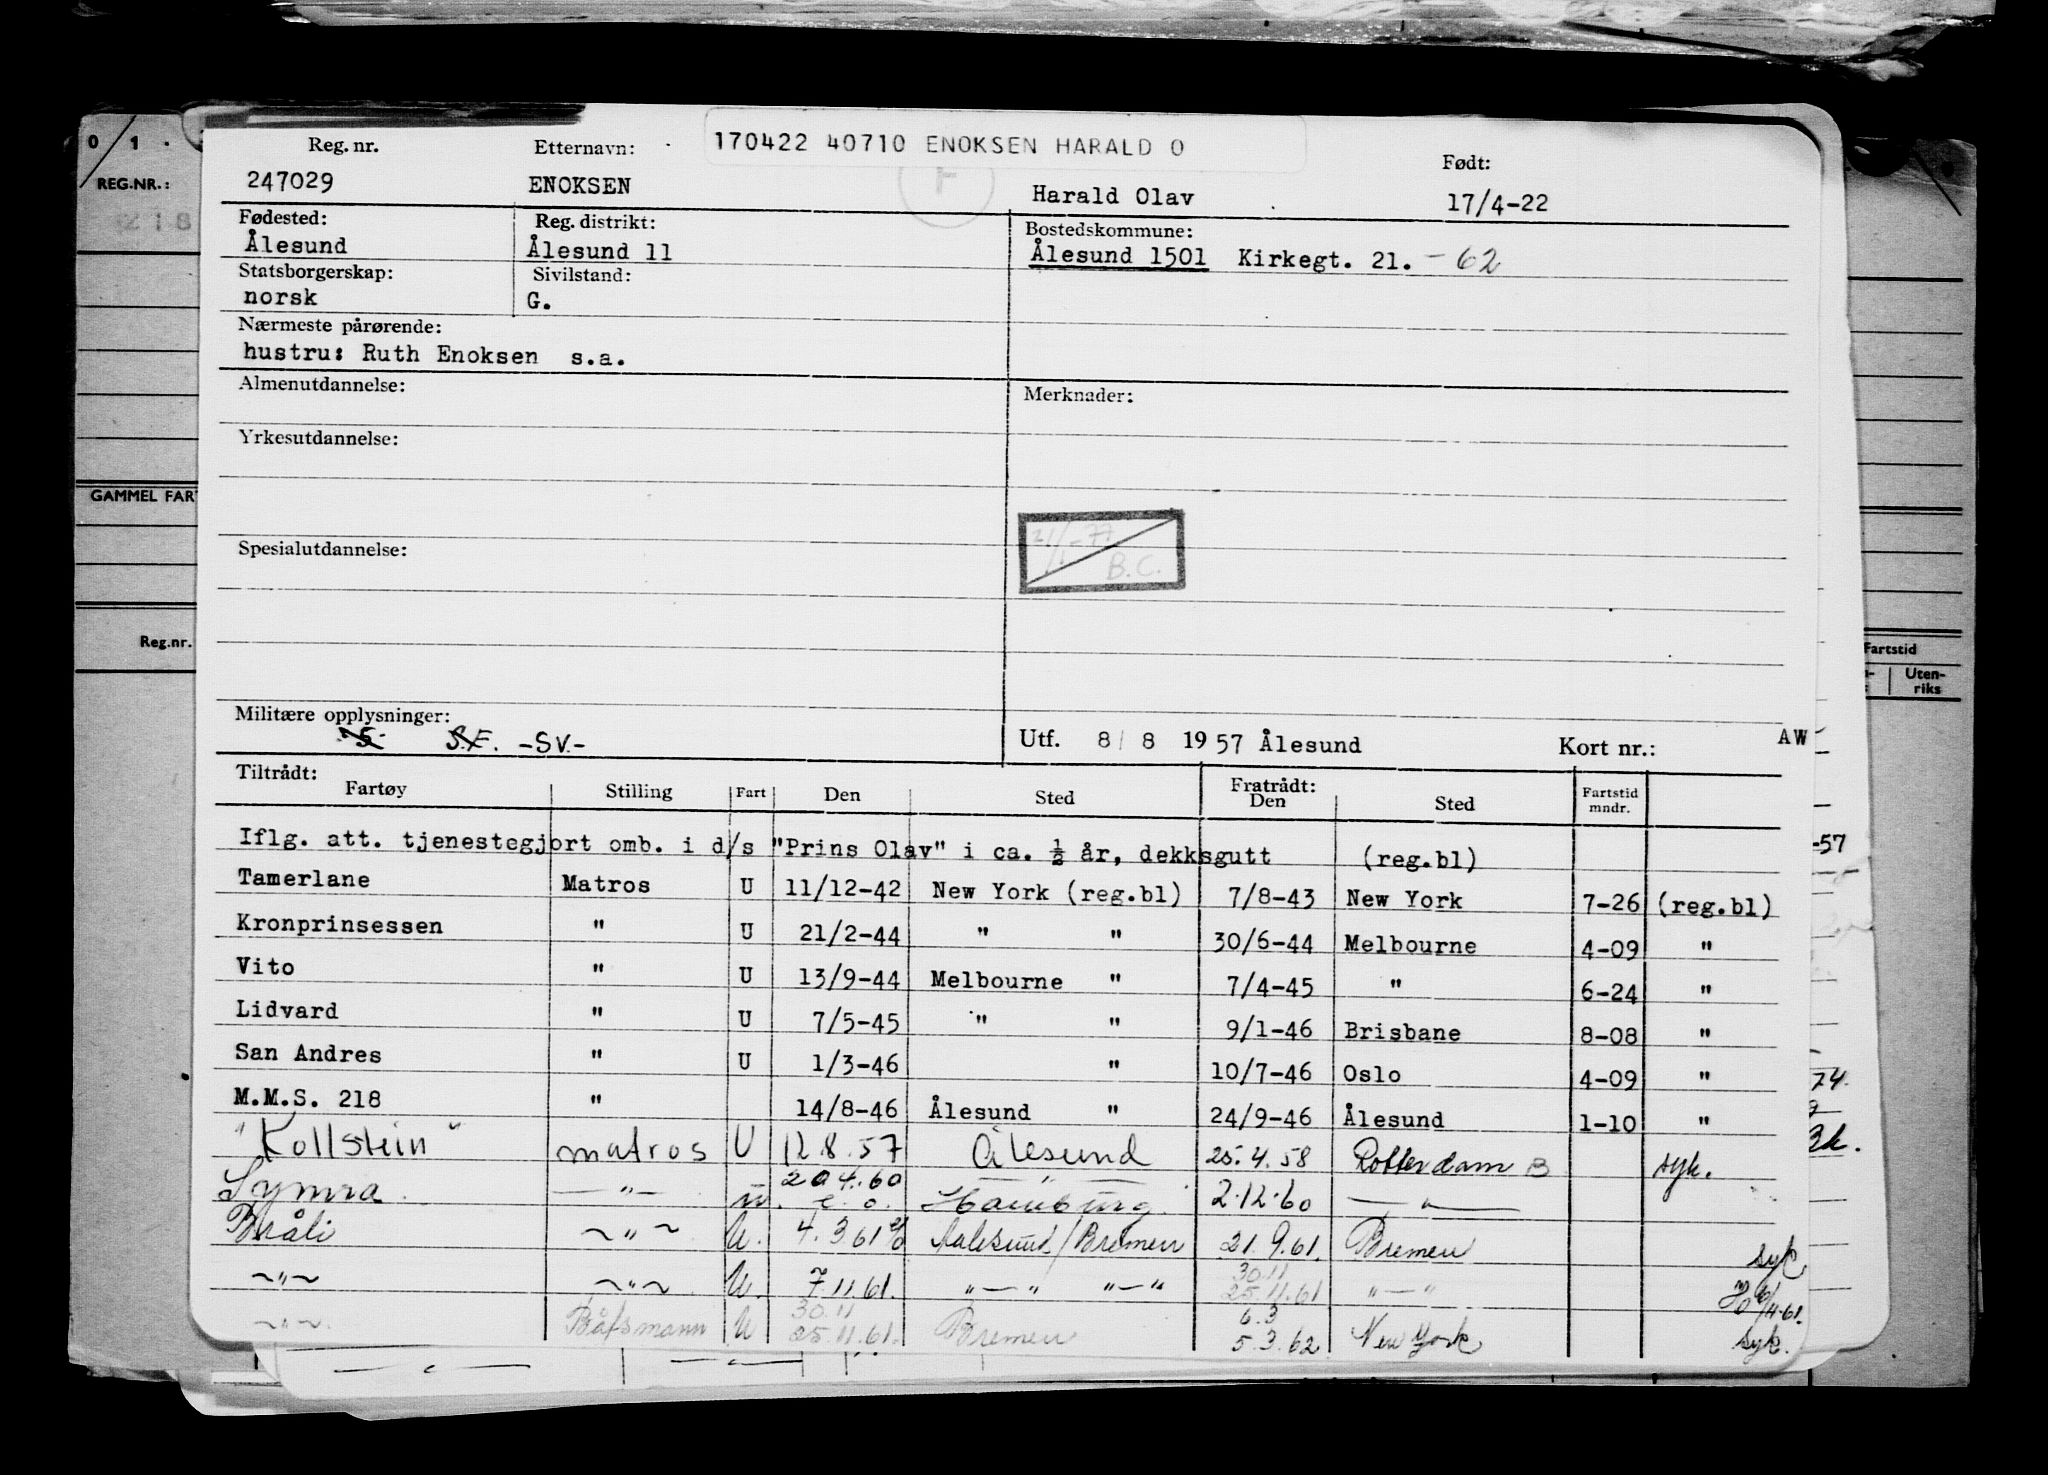 170422 40710 ENOKSEN HARALD O
0 1 .
Reg. nr. Etternavn: Født:
REG.NR.: 247029 ENOKSEN F Harald Olav 17/4-22
218
Fødested: Reg. distrikt: Bostedskommune:
Ålesund Ålesund 11 Ålesund 1501 Kirkegt. 21. - 62
Statsborgerskap: Sivilstand:
norsk G.
Nærmeste pårørende:
hustru: Ruth Enoksen s.a.
Almenutdannelse: Merknader:
Yrkesutdannelse:
GAMMEL FAR
21/1-77
B.C.
Spesialutdannelse:
Reg.nr. Fartstid
Uten-
riks
Militære opplysninger:
S S.F. -SV.- Utf. 8/ 8 1957 Ålesund Kort nr.: AW
Tiltrådt: Fratrådt:
Fartøy Stilling Fart Den Sted Den Sted Fartstid mndr.
Iflg. att. tjenestegjort omb. i d/s "Prins Olav" i ca. ½ år, dekksgutt (reg.bl) -57
Tamerlane Matros U 11/12-42 New York (reg.bl) 7/8-43 New York 7-26 (reg.bl)
Kronprinsessen " U 21/2-44 " " 30/6-44 Melbourne 4-09 "
Vito " U 13/9-44 Melbourne " 7/4-45 " 6-24 "
Lidvard " U 7/5-45 " " 9/1-46 Brisbane 8-08 "
San Andres " U 1/3-46 " 10/7-46 Oslo 4-09 " 74.
M.M.S. 218 " 14/8-46 Ålesund " 24/9-46 Ålesund 1-10 "
"Kollstein" matros U 12.8.57 Ålesund 25.4.58 Rotterdam B syk.
Lymra — " — u. 20.4.60 — " —
e. o. Hamburg. 2.12.60 — " —
Bråli ~ " ~ U. 4.3.61 Aalesund/Bremen 21.9.61. Bremen syk
~ " ~ ~ " ~ U. 7.11.61. " — " " — " 30.11
25.11.61 " — " 6/11-61.
~ " ~ Båtsmann U 30.11
25.11.61. Bremen 6.3
5.3.62 New York syk.